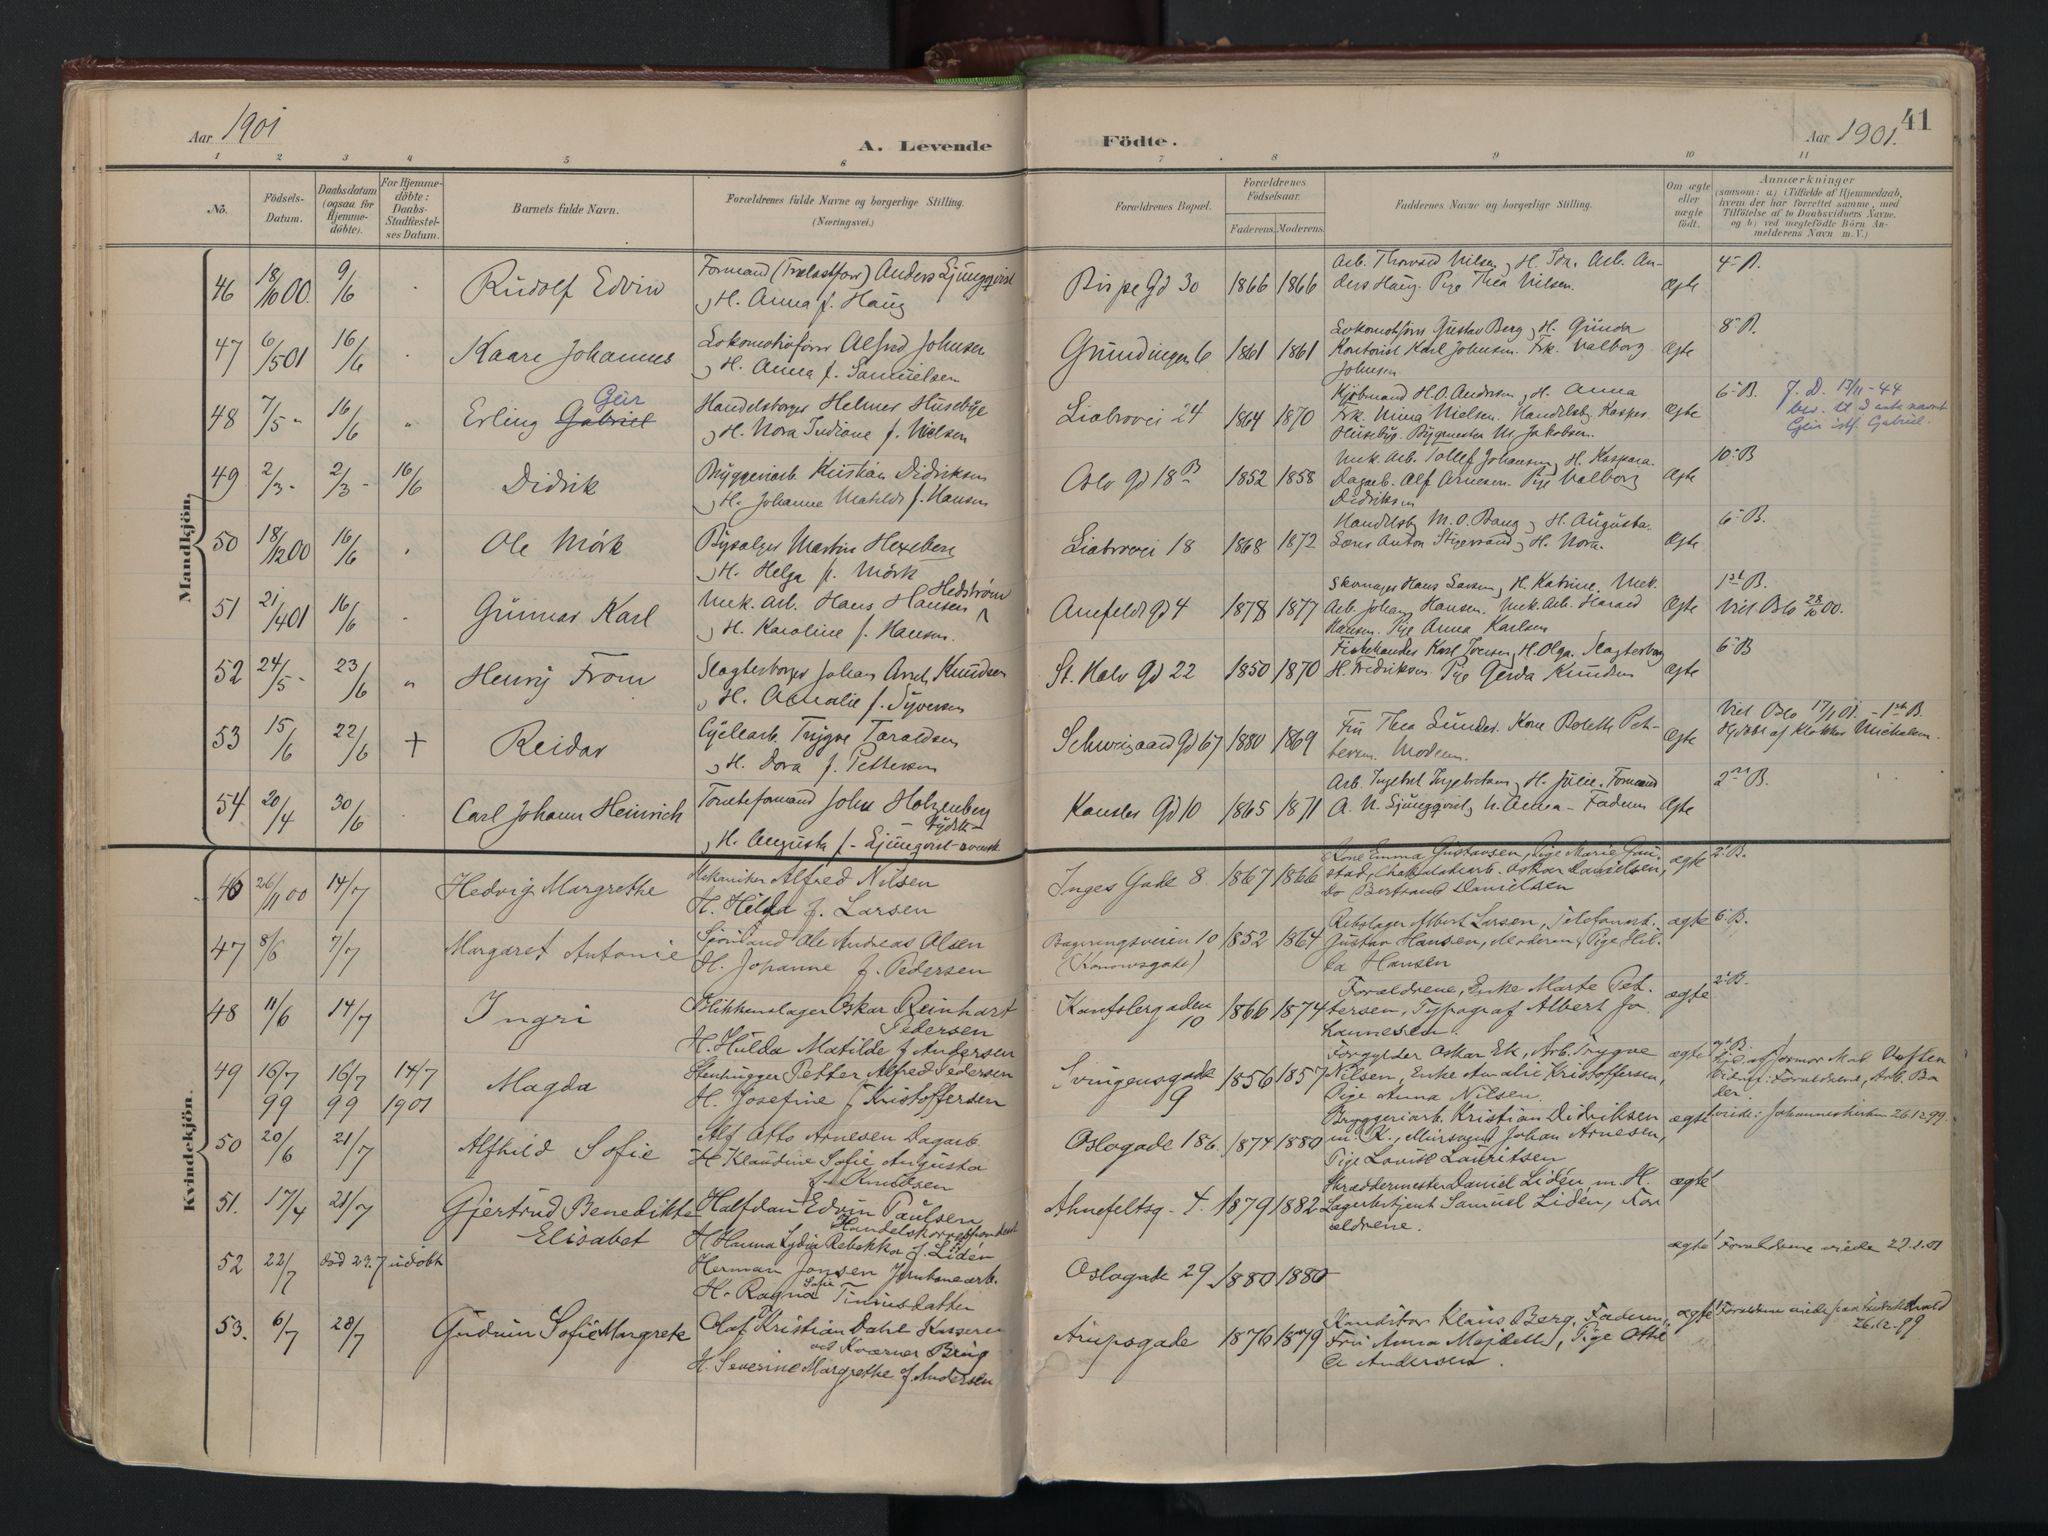 41
Aar 1901
A. Levende
Födte.
Aar 1901.
1 2 3 4 5 6 7 8 9 10 11
No.
Födsels-
Datum.
Daabsdatum
(ogsaa for
Hjemme-
döbte).
For Hjemme-
döbte:
Daabs-
Stadfæstel-
ses Datum.
Barnets fulde Navn.
Forældrenes fulde Navne og borgerlige Stilling.
(Næringsvei.)
Forældrenes Bopæl.
Forældrenes
Födselsaar.
Faderens. Moderens.
Faddernes Navne og borgerlige Stilling.
Om ægte
eller
uægte
födt.
Anmærkninger
(saasom: a) i Tilfælde af Hjemmedaab,
hvem der har forrettet samme, med
Tilföielse af to Daabsvidners Navne,
og b) ved uægtefödte Börn An-
melderens Navn m. V.)
Mandkjön.
46 18/10 00. 9/6 Rudolf Edvin
Formand (Trælastforr) Anders Ljungqvist
H. Anna f. Haug
Bispe Gd 30 1866 1866
Arb. Thorvald Nilsen, H. Arb. An-
ders Haug. Pige Thea Nilsen.
Ægte 4 - B.
47 6/5 01 16/6 Kaare Johannes
Lokomotivfører Alfred Johnsen
H. Anna f. Samuelsen
Grundingen 6 1861 1861
Lokomotivfører Gustav Berg, H. Gunda
Kontorist Karl Johnsen. Frk. Valborg
Johnsen
Ægte 8 - B.
48 7/5 - 16/6 Erling Gabriel Geir
Handelsborger Helmer Husebye
H. Nora Indiane f. Nielsen
Liabrovei 24 1864 1870
Kjøbmand H. O. Andersen, H. Anna
Frk. Nima Nielsen. Handelsb. Kasper
Husebye. Bygmester M. Jakobsen.
Ægte 6 - B.
J. D. 13/11 - 44
bev. til å anta navnet
Geir istf. Gabriel.
49 2/3 - 2/3 - 16/6 Didrik
Bryggeriarb. Kristian Didriksen
H. Johanne Matilde f. Hansen
Oslo gd 18 B 1852 1858
Mek. Arb. Tollef Johansen, H. Kaspara.
Dagarb. Alf Arnesen. Pige Valborg
Didriksen
Ægte 10 - B
50 18/12 00 16/6 Ole Mörk
Bysælger Martin Hexeberg
H. Helga f. Mörk
Liabrovei 18 1868 1872
Handelsb. M. O. Bang, H. Augusta.
Lærer Anton Stigersand, H. Nora.
Ægte 6 - B.
51 21/4 01 16/6 Gunnar Karl
Mek. Arb. Hans Hansen Hedström
H. Karoline f. Hansen.
Anefeldt gd 4 1878 1877
Skomager Hans Larsen, H. Katrine. Mek.
Arb. Johan Hansen. Mek. Arb. Harald
Hansen. Pige Anna Karlsen
Ægte 1st B.
Viet Oslo 28/10 00.
52 24/5 - 23/6 Henry From
Slagterborger Johan Knudsen
H. Amalie f. Syversen
St. Halv. Gd 22 1850 1870
Fiskehandler Karl Iversen, H. Olga. Slagterborg
H. Fredriksen. Pige Gerda Knudsen
Ægte 6 - B
53 15/6 22/6 + Reidar
Trygve Taraldsen
H. Dora f. Pettersen
Schweigaard Gd 67 1880 1869
Fru Thea Sunder. Kone Boleth Pet-
tersen. Moderen.
Ægte
Viet Oslo 17/1 01. - 1st B.
Hjdøbt af Klokker Michelsen.
54 20/4 30/6 Carl Johann Heinrich
Tomteformand John Holzenberg
- tydsk -
H. Augusta f. Ljungqvist - svensk
Kansler Gd 10 1865 1871
Arb. Ingebret Ingebretsen, H. Julie. Formand
A. N. Ljungqvist, H. Anna - Faderen
Ægte 2 B.
Kvindekjön.
46 26/11 00 14/7 Hedvig Margrethe
Mekaniker Alfred Nilsen
H. Hilda f. Larsen
Inges Gade 8. 1867 1866
Kone Emma Gustavsen, Pige Marie Gau-
stad, Chokoladearb. Oskar Danielsen,
Do Bertrand Danielsen
ægte 2. B.
47 8/6 7/7 Margaret Antonie
Sjömand Ole Andreas Olsen
H. Johanne f. Pedersen
Bageringsveien 10
(Konowsgade)
1852 1864
Rebslager Albert Larsen, Telefonmst.
Gustav Hansen, Moderen, Pige Hil-
da Hansen
ægte 6. B.
48 11/6 14/7 Ingri
Blikkenslager Oskar Reinhart
Pedersen
H. Hulda Matilde f. Andersen
Kantslergaden
10
1866 1874
Forældrene, Enke Marte Pet-
tersen, Typograf Albert Jo-
hannesen.
ægte 2. B.
49 16/7 99 16/7 99 14/7 1901 Magda
Stenhugger Petter Alfred Pedersen
H. Josefine f. Kristoffersen
Svingensgade
9
1856 1857
Forgylder Oskar Ek, Arb. Trygve
Nilsen, Enke Amalie Kristoffersen,
Pige Anna Nilsen.
ægte
Hjd. af Jormor Mat. Voften
Vidner: Forældrene, Arb. Ba
der.
50 20/6 21/7 Alfhild Sofie
Alf Otto Arnesen Dagarb.
H. Klaudine Sofie Augusta
f. Knudsen
Oslogade 18b. 1874 1880
Bryggeriarb. Kristian Didriksen
m. H., Mursvend Johan Arnesen,
Pige Lovise Lauritsen
ægte viede i Johanneskirken 26.12.99.
51. 17/4 21/7 Gjertrud Benedikte
Elisabet
Halfdan Edvin Paulsen
Handelskorrespondent
H. Hanna Lydia Rebekka f. Lidén
Ahnefeltsg. 4. 1879 1882
Skræddermester Daniel Lidén m. H.
Lagerbetjent Samuel Lidén, For
ældrene.
ægte
52 22/7 död 23.7 udöbt
Herman Jonsen Jernbanearb.
H. Ragna Sofie Tiniusdatter
Oslogade 29 1880 1880
ægte Forældrene viede 27.1.01
53. 6/7 28/7 Gudrun Sofie Margrete
Olaf Kristian Dahl Kasserer
ved Kværner Brug
H. Severine Margrethe f. Andersen
Arupsgade 1876 1879
Konditor Klaus Berg, Faderen,
Fru Anna Mejdell, Pige Otti
lie Andersen.
ægte
Forældrene viede paa Fredrikshald
26.12.99